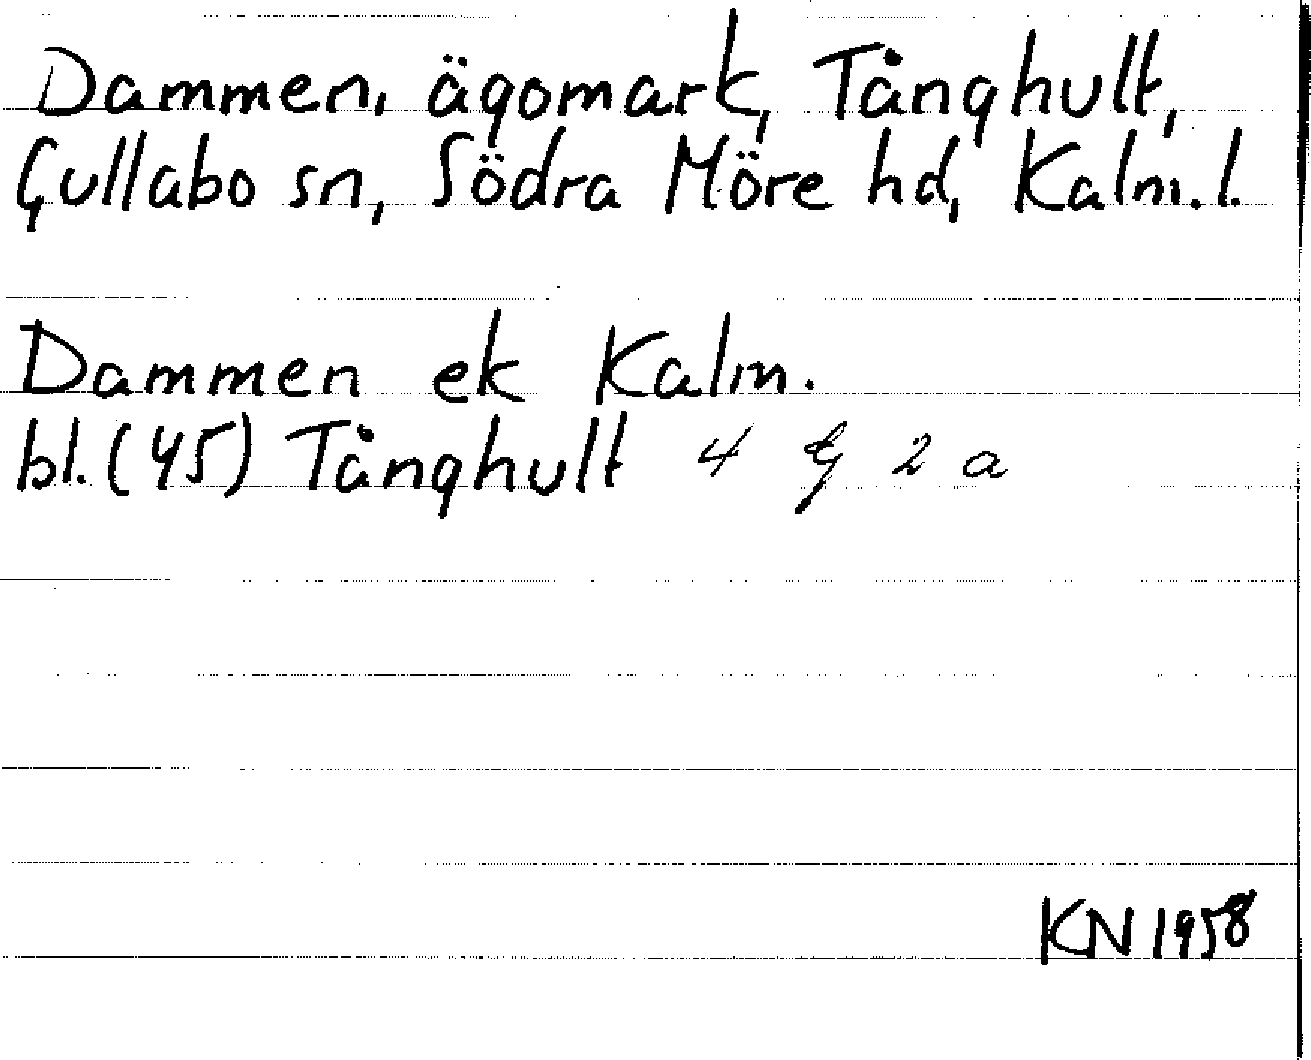 Dammen, ägomark, Tånghult,
Gullabo sn, Södra Möre hd, Kalm. l.
Dammen ek Kalm.
bl. (45) Tånghult 4 G 2 a
KN 1958